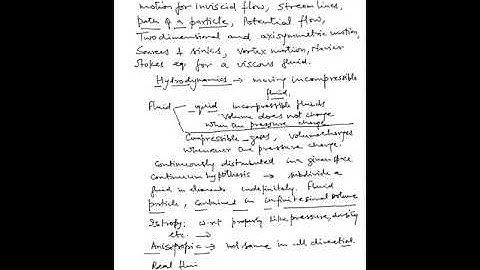 motion for Inviscid flow, Stream lines,
path of a particle, Potential flow,
Two dimensional and axisymmetric motion,
Sources & sinks, Vortex motion, Navier
Stokes eq for a viscous fluid.
Hydrodynamics → moving incompressible
fluid.
Fluid liquid incompressible fluids
Volume does not change
when pressure change
Compressible gases, volume changes
whenever pressure change.
Continuously distributed in a given space
Continuum hypothesis → subdivide a
fluid in elements indefinitely. Fluid
particle, contained in infinitesimal volume
Isotropy: w.r.t property like pressure, density
etc. →
Anisotropic → not same in all direction
Real flui